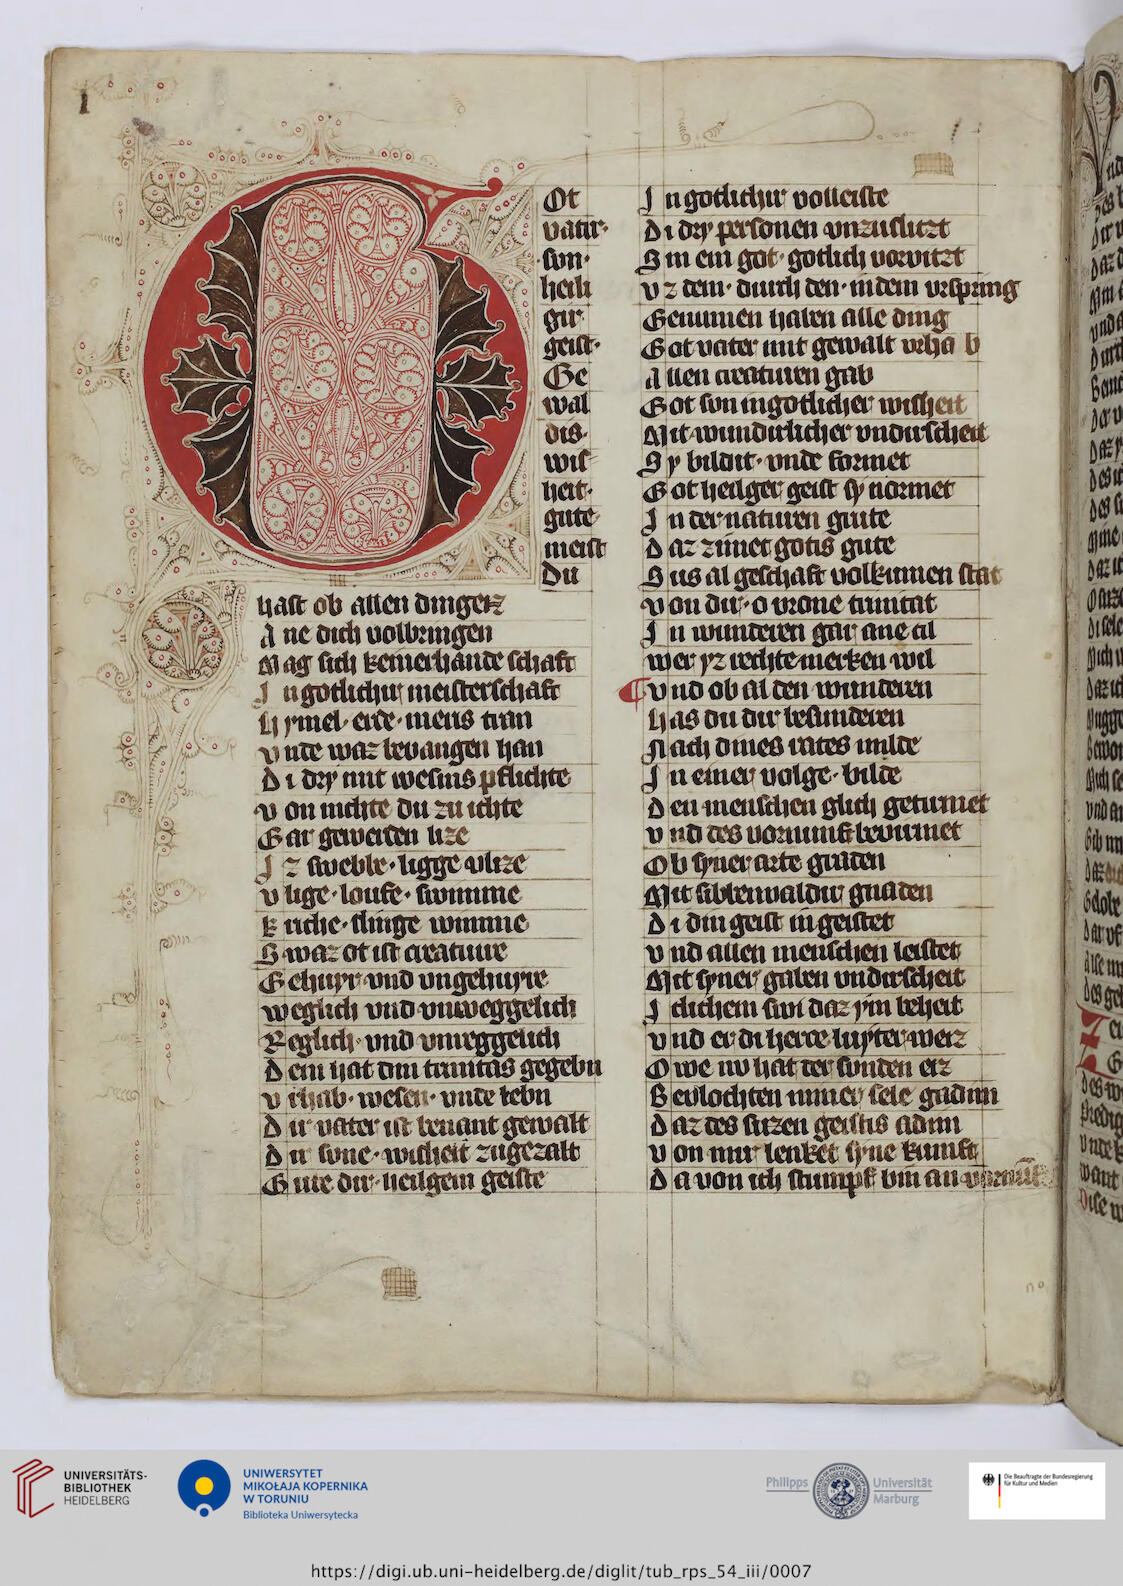 1
Ot
vatir·
sun·
heili
gir·
geist·
Ge
wal
dis·
wis
heit·
gute
meist
Du
hast ob allen dingen
Ane dich volbringen
Mag sich keinerhande schaft
In gotlichir meisterschaft
Hymel· erde· meris tran
Vnde waz bevangen han
Di dry mit wesins pflichte
Von nichte du zu ichte
Gar geweiden lize
Iz sweble· ligge vlize
Vlige· loufe· swimme
Kriche· slinge wimme
Swaz ot ist creature
Gehuyr· vnd vngehuyre
Weglich vnd vnweggelich
Reglich· vnd vnreggelich
Dem hat din trinitas gegebn
Vrhab· wesen· vnde lebn
Dir vater ist benant gewalt
Dir sone· wisheit zugezalt
Gute dir· heilgem geiste
In gotlichir volleiste
Di dry personen vnzuslizt
Sin ein got· gotlich vorwitzt
Vz dem· durch den· in dem vrspring
Genumen haben alle ding
Got vater mit gewalt vrhab
Allen creaturen gab
Got son in gotlicher wisheit
Mit wundirlicher vndirscheit
Sy bildit· vnde formet
Got heilger geist sy normet
In der naturen gute
Daz zimet gotis gute
Sus al geschaft volkumen stat
Von dir· o vrone trinitat
In wunderen gar ane zil
Wer yz rechte merken wil
Vnd ob al den wunderen
Has du dir besunderen
Nach dines rates milde
In einer volge· bilde
Den menschen glich geturmet
Vnd des vornunft bevurmet
Ob syner arte graden
Mit sibbenvaldir gnaden
Di din geist in geistet
Vnd allen menschen leistet
Mit syner gaben vndirscheit
Iclichem swi daz ym beheit
Vnd er di herce luyter werz
Owe nv hat der sunden erz
Bevlochten miner sele gadim
Daz des suzen geistis adim
Von mir lenket syne kunft
Da von ich stumpf bin an vornunft
UNIVERSITÄTS-
BIBLIOTHEK
HEIDELBERG
UNIWERSYTET
MIKOŁAJA KOPERNIKA
W TORUNIU
Biblioteka Uniwersytecka
Philipps Universität
Marburg
Die Beauftragte der Bundesregierung
für Kultur und Medien
https://digi.ub.uni-heidelberg.de/diglit/tub_rps_54_iii/0007